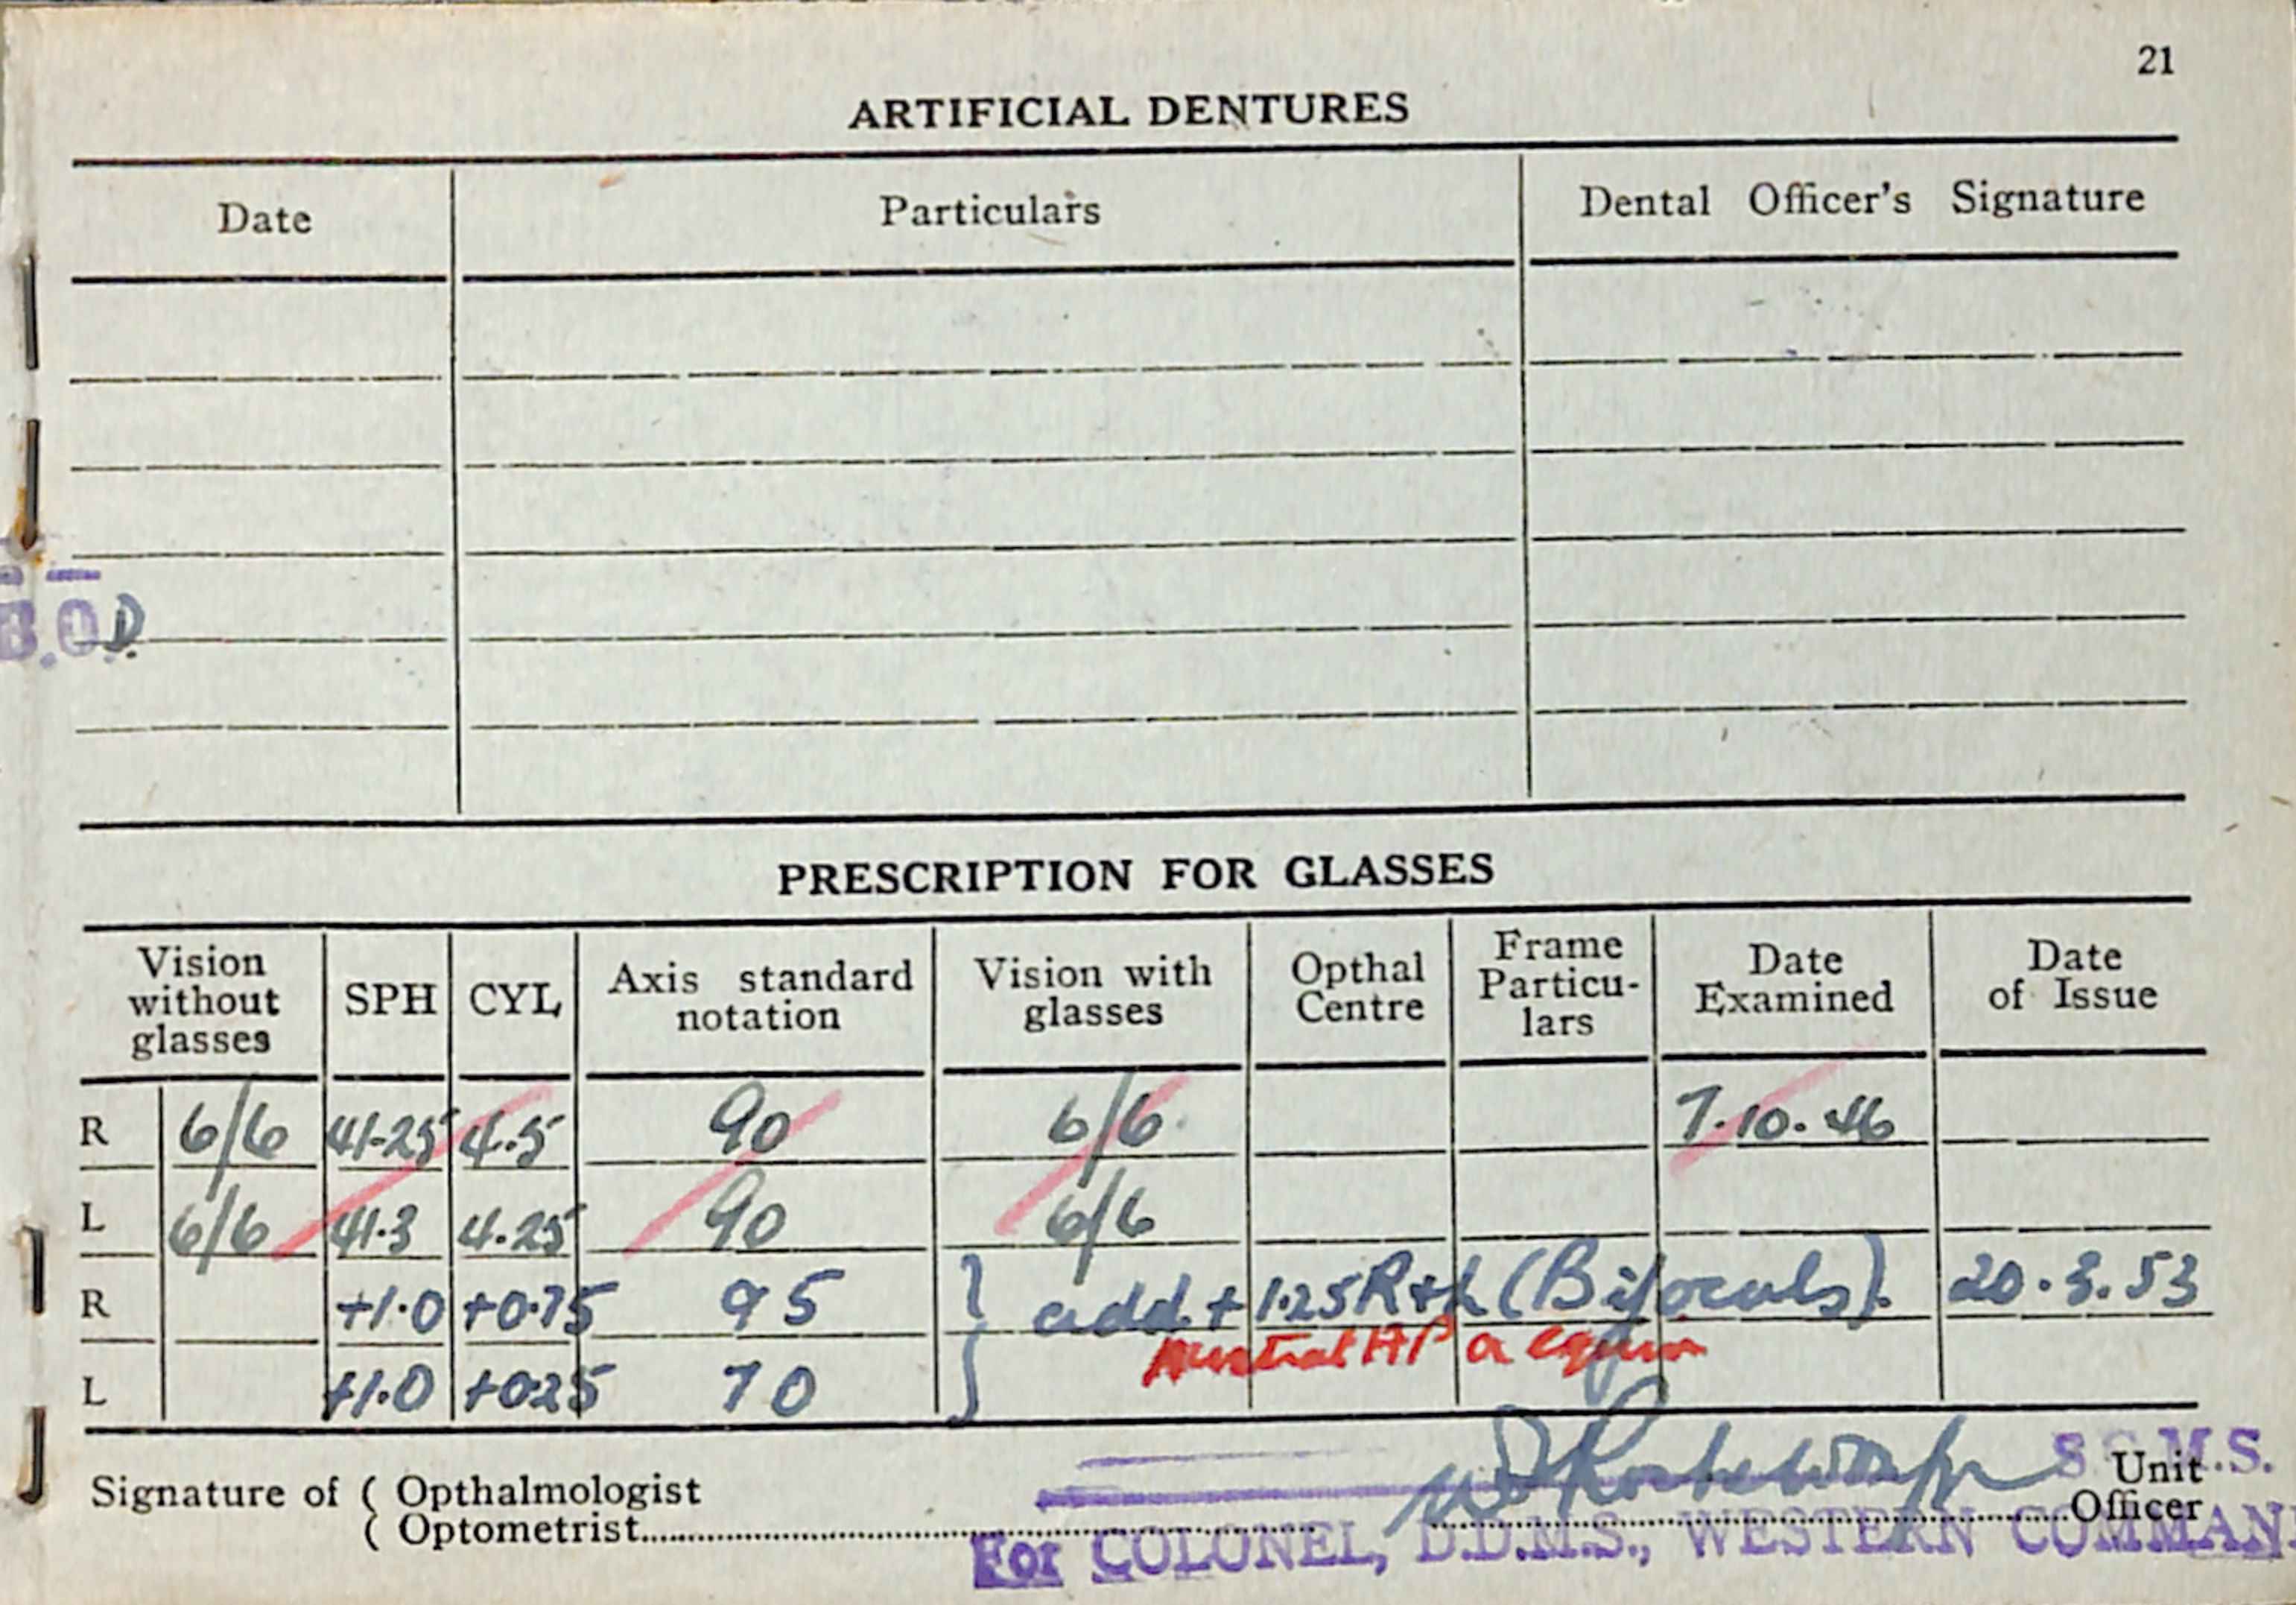 21
ARTIFICIAL DENTURES
Date Particulars Dental Officer's Signature
B.O.D.
PRESCRIPTION FOR GLASSES
Vision without glasses SPH CYL Axis standard notation Vision with glasses Opthal Centre Frame Particu-lars Date Examined Date of Issue
R 6/6 +1.25 +.5 90 6/6 7.10.46
L 6/6 +1.3 +.25 90 6/6
R +1.0 +0.75 95 } add + 1.25 R+L (Bifocals). 20.3.53
L +1.0 +0.25 70
Signature of ( Opthalmologist Unit
( Optometrist Officer
M.S.
For COLONEL, D.D.M.S., WESTERN COMMAN